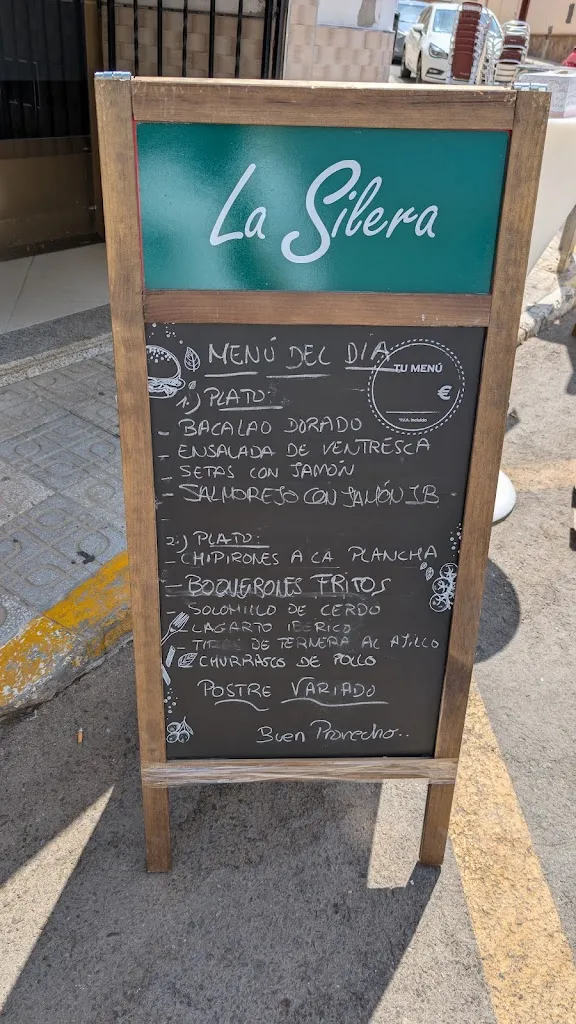 La Silera
MENÚ DEL DIA
TU MENÚ
€
*I.V.A. incluido
1.) PLATO:
- BACALAO DORADO
- ENSALADA DE VENTRESCA
- SETAS CON JAMÓN
- SALMOREJO CON JAMÓN IB
2.) PLATO:
- CHIPIRONES A LA PLANCHA
- BOQUERONES FRITOS
- SOLOMILLO DE CERDO
- LAGARTO IBERICO
- DE TERNERA AL AJILLO
- CHURRASCO DE POLLO
POSTRE VARIADO
Buen Provecho..